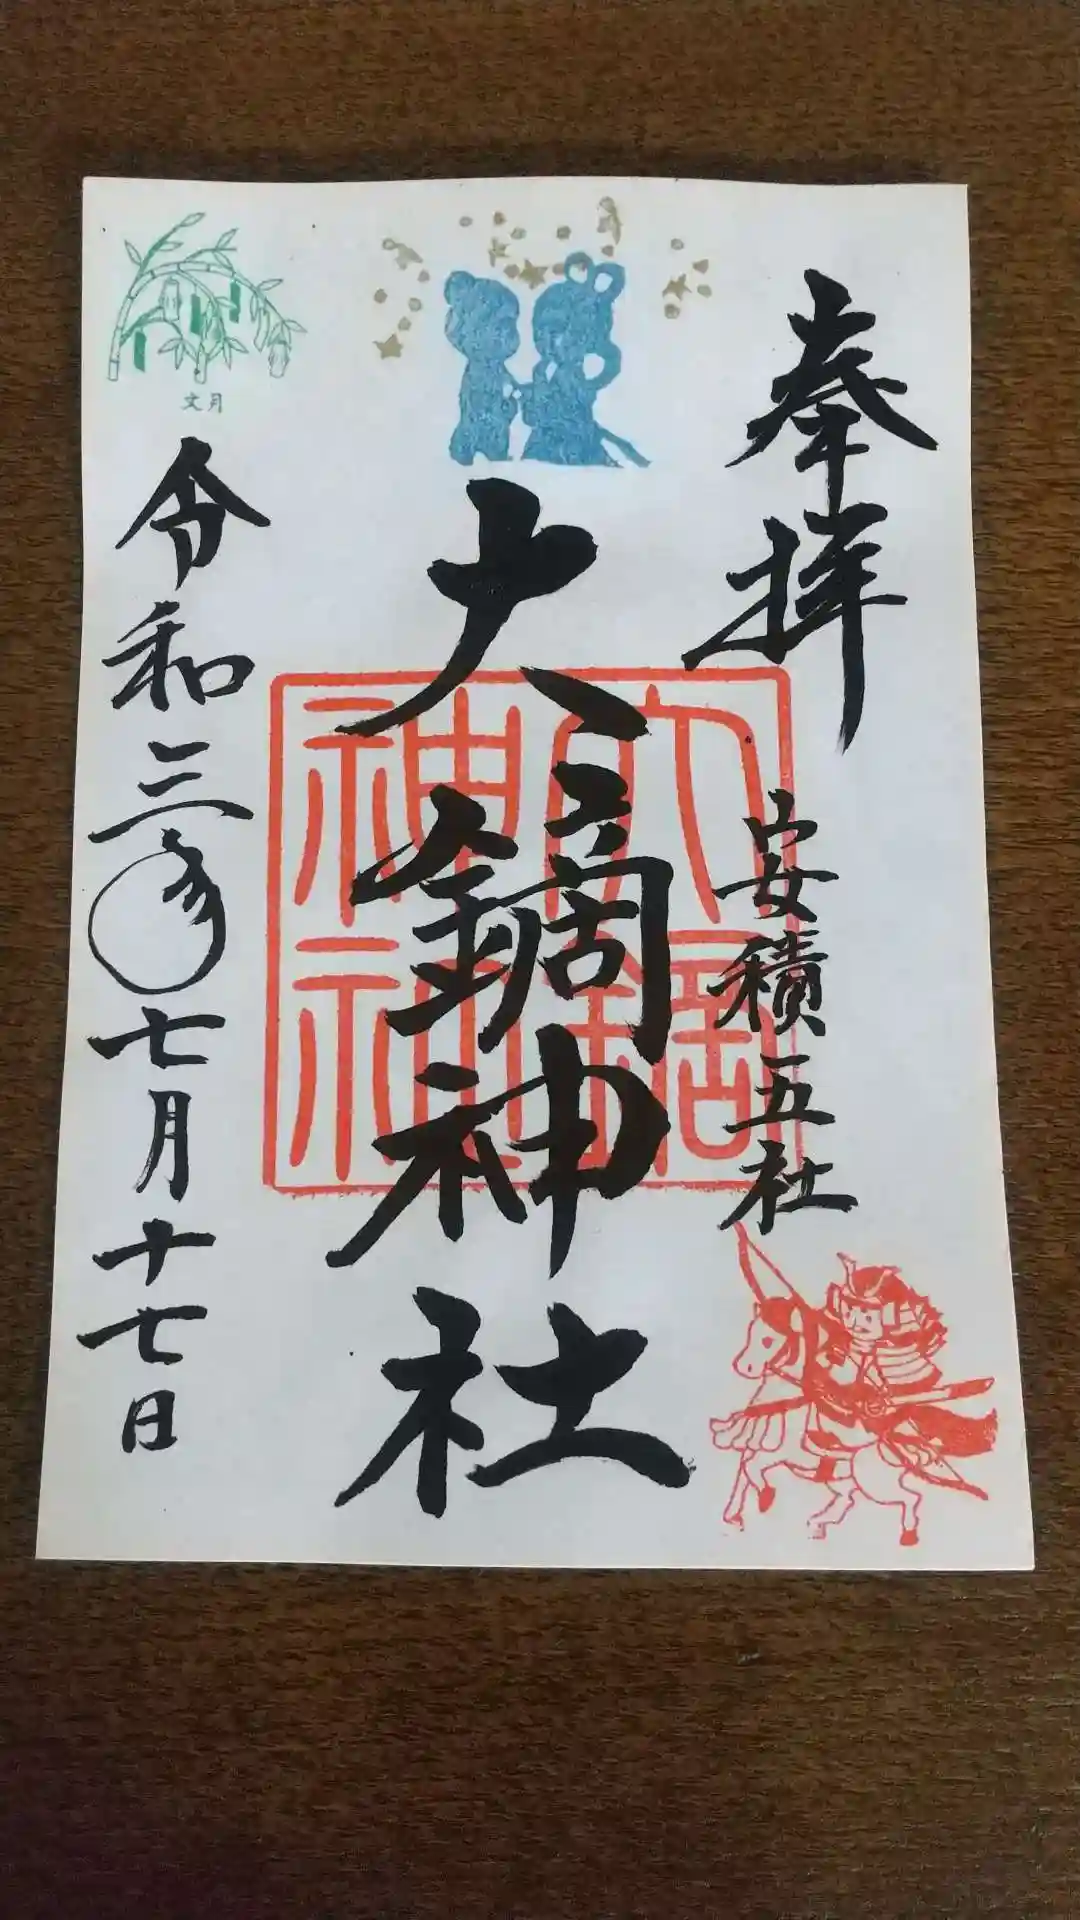 奉拝
安積五社
大鏑神社
大鏑
神社
文月
令和三年七月十七日